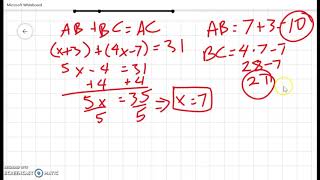 Microsoft Whiteboard
AB + BC = AC
(x+3) + (4x-7) = 31
5x - 4 = 31
+4 +4
5x = 35
5 5
⇒ x = 7
AB = 7 + 3 = 10
BC = 4 · 7 - 7
28 - 7
RECORDED WITH
SCREENCAST-O-MATIC